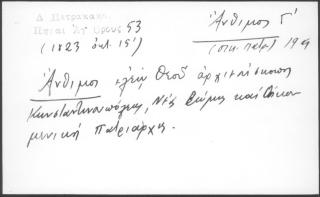 Δ. Πετρακάκη
Πηγαί Ἁγ. Ὄρους 53
(1823 ὀκτ. 15)
Ἄνθιμος Γ΄
Ἄνθιμος ἐλέῳ Θεοῦ ἀρχιεπίσκοπος
Κωνσταντινουπόλεως, Νέας Ῥώμης καὶ Οἰκου
μενικὸς Πατριάρχης.